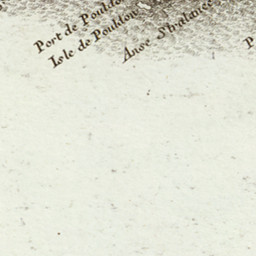 Port de Pouldou
Isle de Pouldou
Anse
P